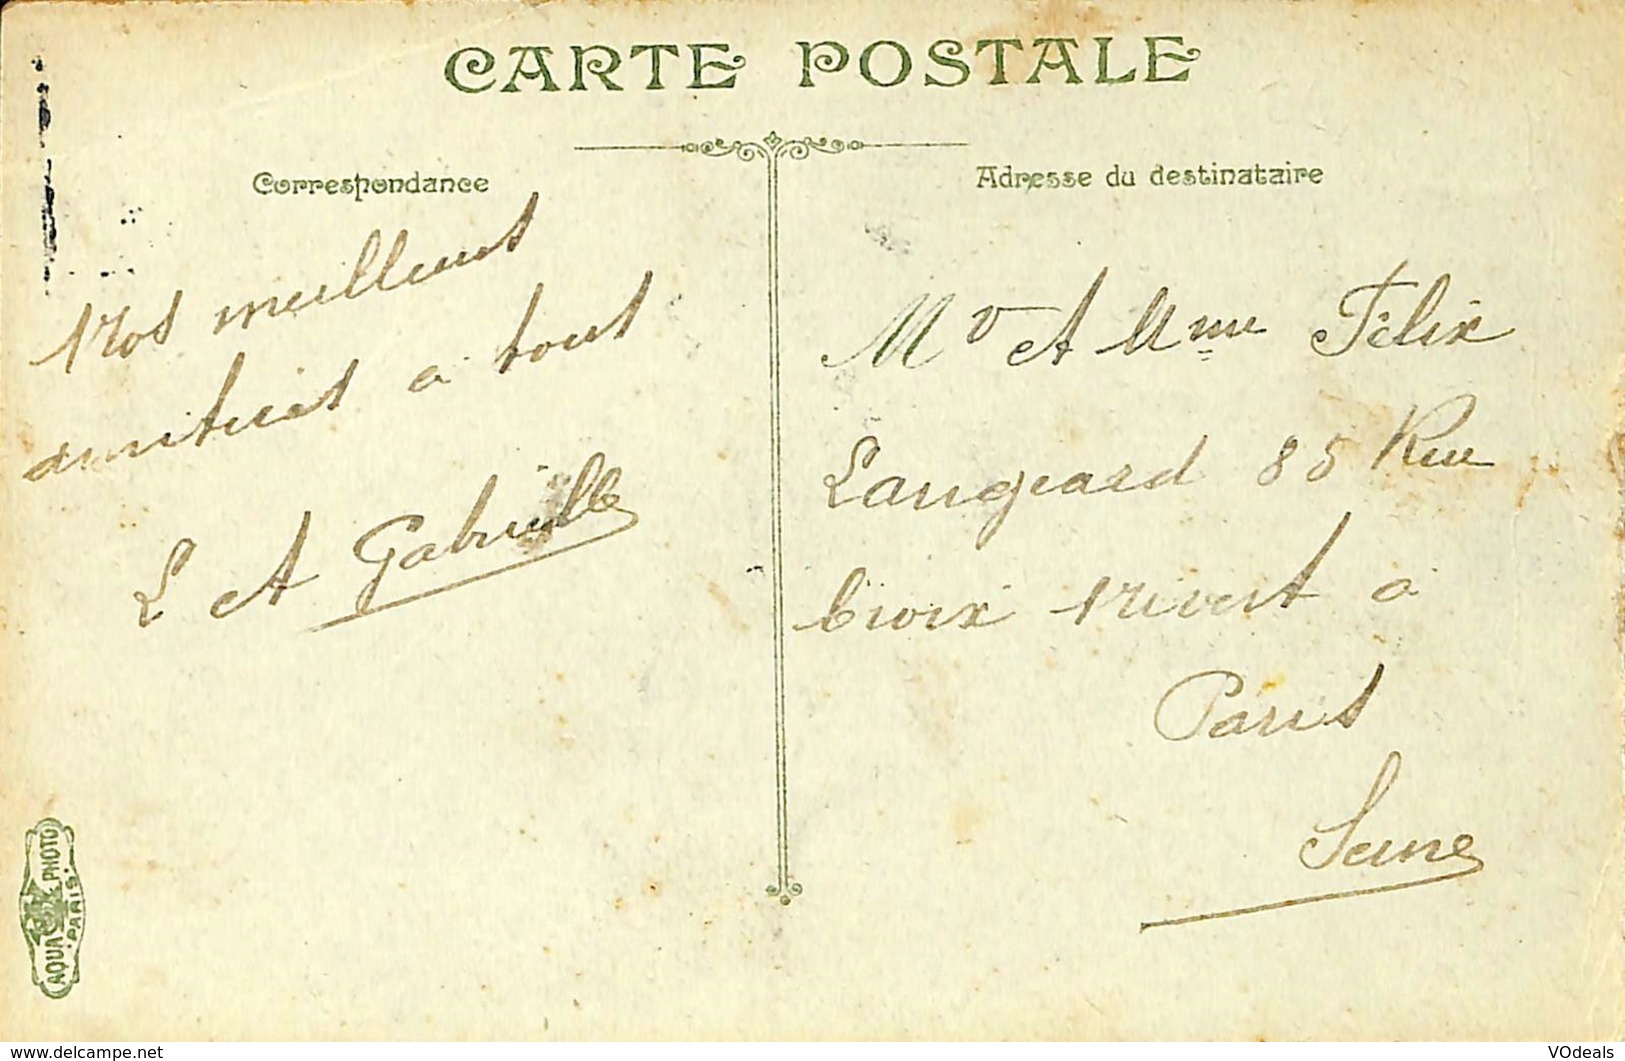 CARTE POSTALE
Correspondance
Nos meilleurs
amitiés a tous
L et Gabrielle
Adresse du destinataire
Mr et Mme Félix
Langeard 85 Rue
Croix Nivert a
Paris
Seine
AQUA PHOTO
PARIS
www.delcampe.net
VOdeals